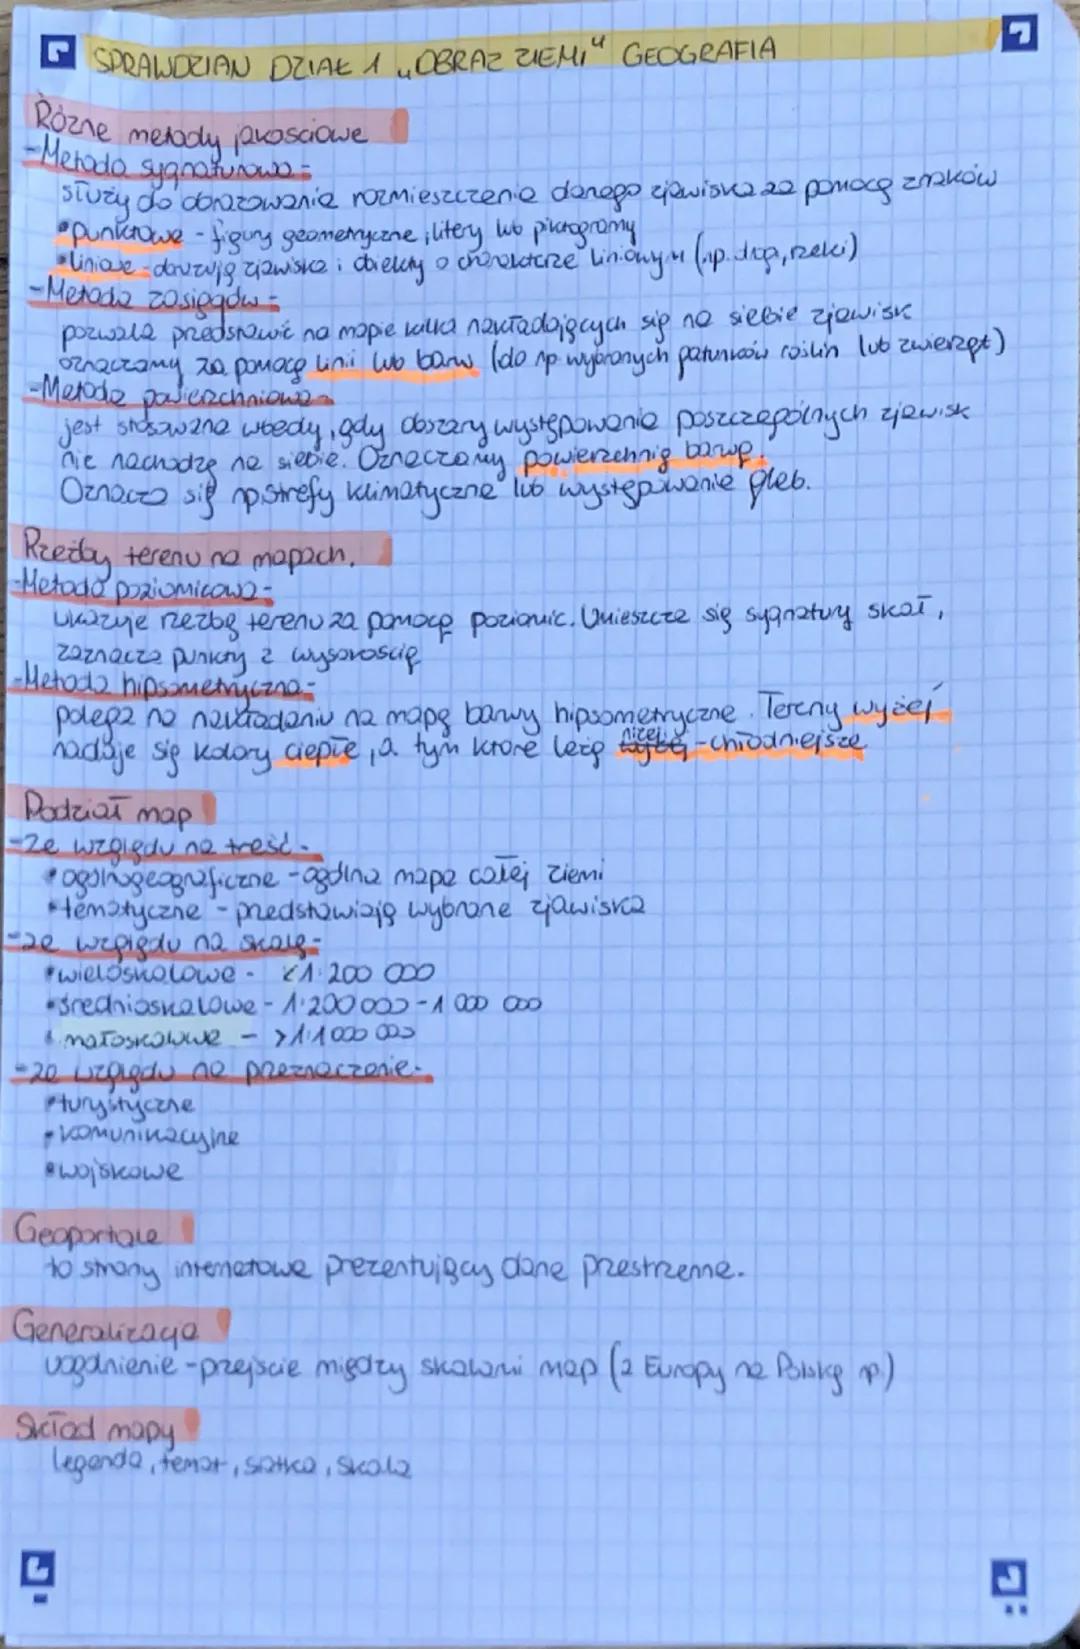 SPRAWDZIAN DZIAŁ 1 „OBRAZ ZIEMI" GEOGRAFIA
Różne metody jakościowe
-Metoda sygnaturowa-
służy do obrazowania rozmieszczenia danego zjawiska za pomocą znaków
•punktowe - figury geometryczne, litery lub piktogramy
•liniowe - zjawiska i obiekty o charakterze liniowym (np. droga, rzeki)
-Metoda zasięgów-
pozwala przedstawić na mapie kilka nakładających się na siebie zjawisk
oznaczamy za pomocą linii lub barw (do np wybranych gatunków roślin lub zwierząt)
-Metoda powierzchniowa-
jest stosowana wtedy, gdy obszary występowania poszczególnych zjawisk
nie nachodzą na siebie. Oznaczamy powierzchnią barwę.
Oznacza się np. strefy klimatyczne lub występowanie gleb.
Rzeźby terenu na mapach.
-Metoda poziomicowa-
ukazuje rzeźbę terenu za pomocą poziomic. Umieszcza się sygnatury skał,
zaznacza punkty z wysokością
-Metoda hipsometryczna-
polega na nakładaniu na mapę barwy hipsometryczne. Tereny wyżej
nadaje się kolory ciepłe, a tym które leżą niżej - chłodniejsze
Podział map
-ze względu na treść-
•ogólnogeograficzne - ogólna mapa całej ziemi
•tematyczne - przedstawiają wybrane zjawiska
-ze względu na skalę-
•wieloskalowe - <1:200 000
•średnioskalowe - 1:200 000-1 000 000
•małoskalowe - >1:1 000 000
-ze względu na przeznaczenie-
•turystyczne
•komunikacyjne
•wojskowe
Geoportale
to strony internetowe prezentujący dane przestrzenne.
Generalizacja
uogólnienie - przejście między skalami map (z Europy na Polskę np.)
Skład mapy
legenda, temat, siatka, skala